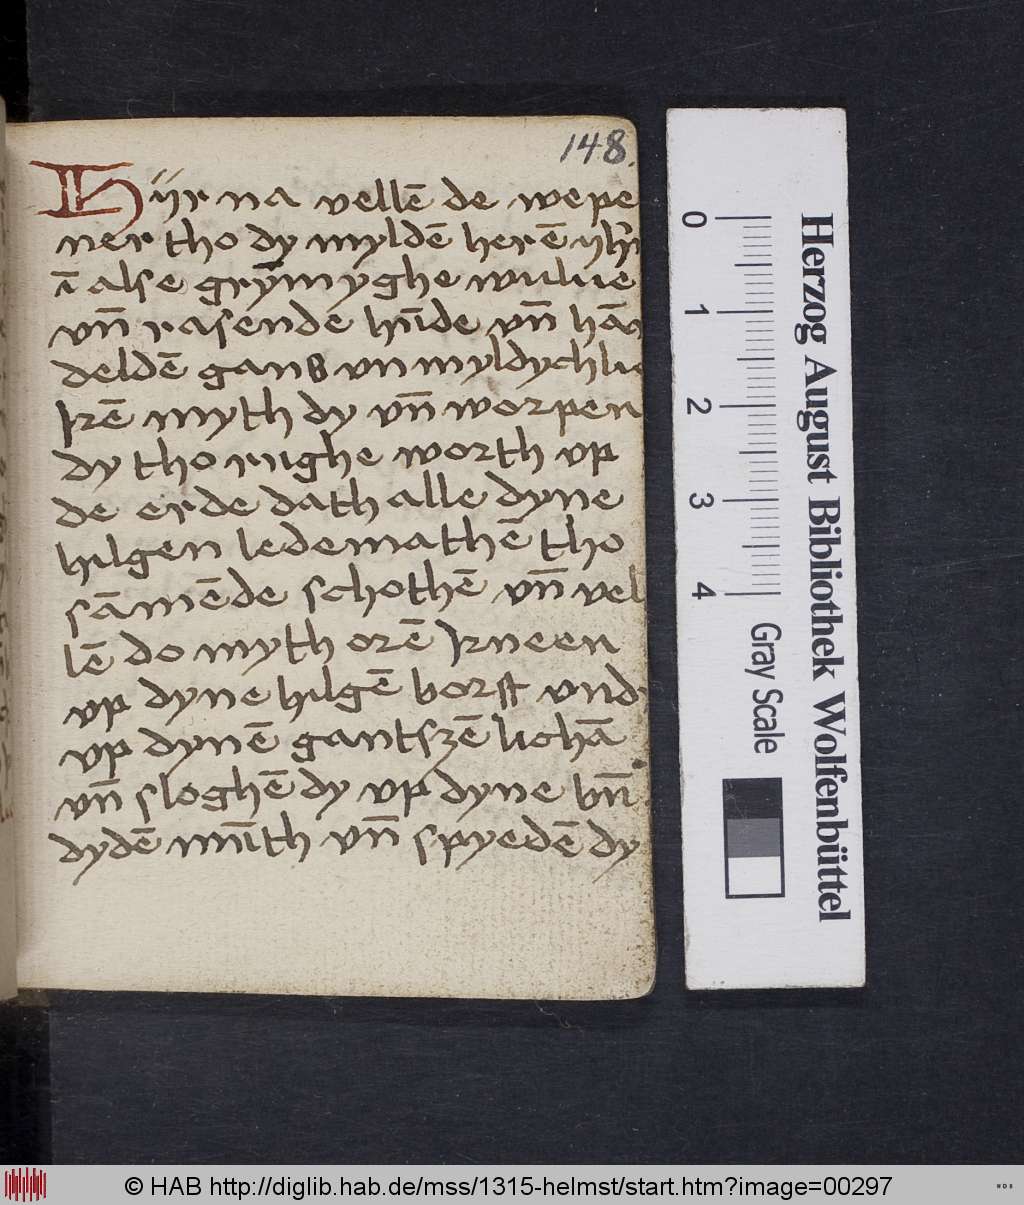 148.
Hÿr na vellē de wepe
ner tho dy myldē herē
alse grȳmyghe wulue
vn̄ rasende hūde vn̄
deldē gans vn myldychli
kē myth dy vn̄ worpen
dy tho rughe worth up
de erde dath alle dyne
hilgen ledemathē tho
sāmēde schothē vn̄ vel
lē do myth orē kneen
up dyne hilgē borst vnde
up dynē gantszē lichā
vn̄ sloghē dy up dyne bn̄
dydē mūth vn̄ spyedē dy
0
1
2
3
4
Gray Scale
Herzog August Bibliothek Wolfenbüttel
© HAB http://diglib.hab.de/mss/1315-helmst/start.htm?image=00297